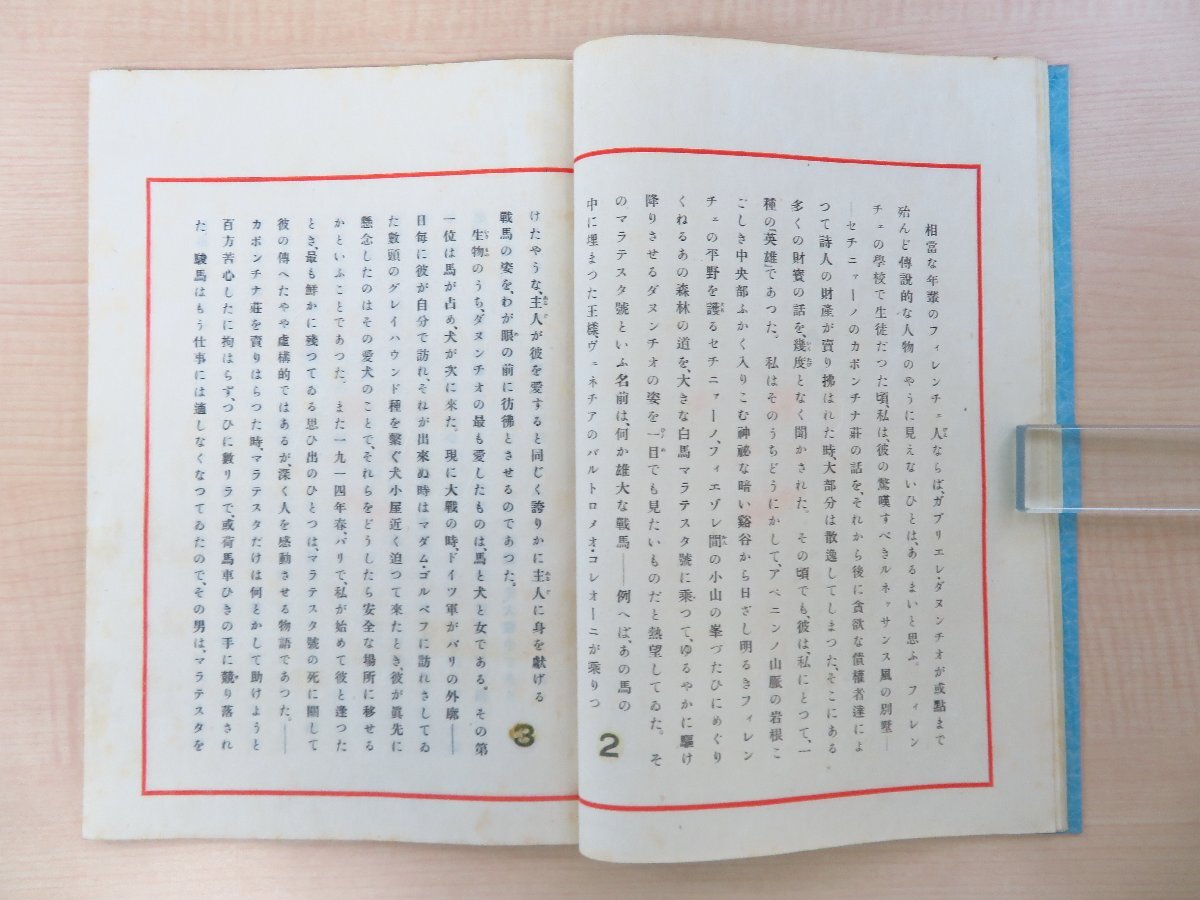 相當な年輩のフィレンチェ人ならば、ガブリエレ・ダヌンチオが或點まで
殆んど傳說的な人物のやうに見えないひとは、あるまいと思ふ。フィレン
チェの學校で生徒だつた頃、私は、彼の驚嘆すべきルネッサンス風の別墅—
—セチニァーノのカポンチナ莊の話を、それから後に貪欲な債權者達によ
つて詩人の財產が賣り拂はれた時、大部分は散逸してしまつた、そこにある
多くの財寳の話を、幾度となく聞かされた。その頃でも、彼は、私にとつて、一
種の「英雄」であつた。私はそのうちどうにかして、アペニンノ山脈の岩根こ
ごしき中央部ふかく入りこむ神祕な暗い谿谷から日ざし明るきフィレン
チェの平野を護るセチニァーノ、フィエゾレ間の小山の峯づたひにめぐり
くねるあの森林の道を、大きな白馬マラテスタ號に乘つて、ゆるやかに驅け
降りさせるダヌンチオの姿を一目でも見たいものだと熱望してゐた。そ
のマラテスタ號といふ名前は、何か雄大な戰馬——例へば、あの馬の
中に埋まつた王樣、ヴェネチアのバルトロメオ・コレオーニが乘りつ
2
けたやうな、主人が彼を愛すると同じく誇りかに主人に身を獻げる
戰馬の姿を、わが眼の前に彷彿とさせるのであつた。
生物のうち、ダヌンチオの最も愛したものは、馬と犬と女である。その第
一位は馬が占め、犬が次に來た。現に大戰の時、ドイツ軍がパリの外廓——
日每に彼が自分で訪れ、それが出來ぬ時はマダム・ゴルベフに訪れさしてゐ
た數頭のグレイハウンド種を繫ぐ犬小屋近く迫つて來たとき、彼が眞先に
懸念したのはその愛犬のことで、それらをどうしたら安全な場所に移せる
かといふことであつた。また一九一四年春、パリで、私が始めて彼と逢つた
とき、最も鮮かに殘つてゐる思ひ出のひとつは、マラテスタ號の死に關して
彼の傳へたやや虛構的ではあるが、深く人を感動させる物語であつた。——
カポンチナ莊を賣りはらつた時、マラテスタだけは何とかして助けようと
百方苦心したに拘はらず、つひに數リラで、或荷馬車ひきの手に競り落され
た。駿馬はもう仕事には適しなくなつてゐたので、その男は、マラテスタを
3